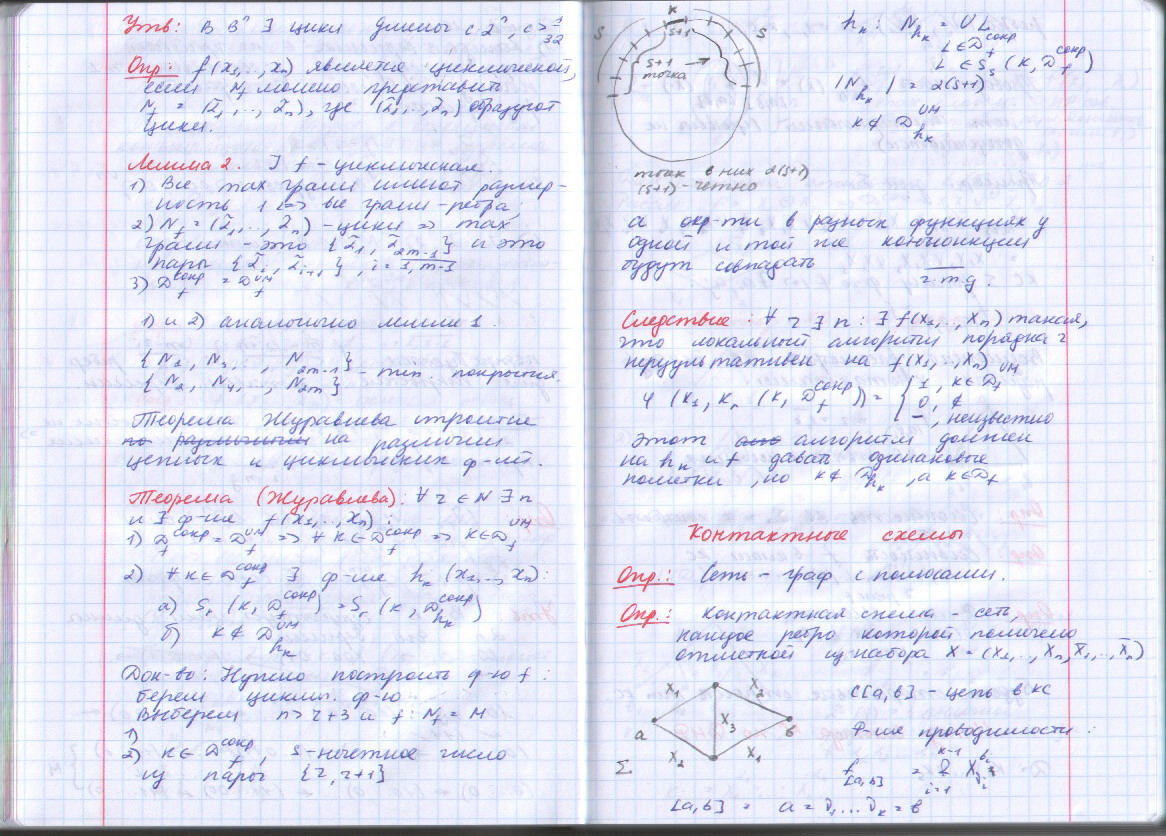 Утв: В Bⁿ ∃ цикл длиной c·2ⁿ, c > 1/32
Опр: f(x₁,..,xₙ) является циклической,
если N_f можно представить
N_f = (α̃₁,..., α̃ₙ), где (α̃₁,..., α̃ₙ) образуют
цикл.
Лемма 2. ∃ f - циклическая.
1) Все max грани имеют размер-
ность 1 <=> все грани-ребра;
2) N_f = (α̃₁,..., α̃ₙ) - цикл => max
грани - это {α̃₁, α̃₂ₘ₋₁} и это
пары {α̃ᵢ, α̃ᵢ₊₁}, i = 1, m-1
3) D_f^сокр = D_f^им
1) и 2) аналогично лемме 1.
{N₁, N₃, ..., N₂ₘ₋₁} - тип. покрытия
{N₂, N₄, ..., N₂ₘ}
Теорема Журавлева строится
на различии
цепных и циклических ф-ий.
Теорема (Журавлева): ∀ r ∈ N ∃ n
и ∃ ф-ия f(x₁,..,xₙ):
1) D_f^сокр = D_f^им => ∀ K ∈ D_f^сокр => K ∈ D_f^им
2) ∀ K ∈ D_f^сокр ∃ ф-ия h_K (x₁,..., xₙ):
а) S_r (K, D_f^сокр) = S_r (K, D_{h_K}^сокр)
б) K ∉ D_{h_K}^им
Док-во: Нужно построить ф-ю f:
берем цикл. ф-ю
Выберем n > r+3 и f: N_f = M
2) K ∈ D_f^сокр, s - нечетное число
из пары {r, r+1}
K
S S+1 S
S+1
точка
точек в них 2(s+1)
(s+1) - четно
h_K: N_{h_K} = ∪ L
L ∈ D_f^сокр
L ∈ S_s (K, D_f^сокр)
|N_{h_K}| = 2(s+1)
K ∉ D_{h_K}^им
а окр-ти в разных функциях у
одной и той же конъюнкции
будут совпадать
ч.т.д.
Следствие: ∀ r ∃ n: ∃ f(x₁,..,xₙ) такая,
что локальный алгоритм порядка r
нерезультативен на f(x₁,..,xₙ)
φ (x₁, Kₙ (K, D_f^сокр)) = { 1, K ∈ D_f^им
0, ∉
-, неизвестно
Этот алгоритм должен
на h_K и f давать одинаковые
пометки, но K ∉ D_{h_K}, а K ∈ D_f
Контактные схемы
Опр.: Сеть - граф с полюсами.
Опр.: Контактная схема - сеть,
каждое ребро которой помечено
отметкой из набора X = (x₁,.., xₙ, x̄₁,.., x̄ₙ)
x₁ x₂
a x₃ b
x₂ x₁
Σ
C[a,b] - цепь в КС
Ф-ия проводимости:
f_[a,b] = & x
[a,b] = a = v₁...v_K = b